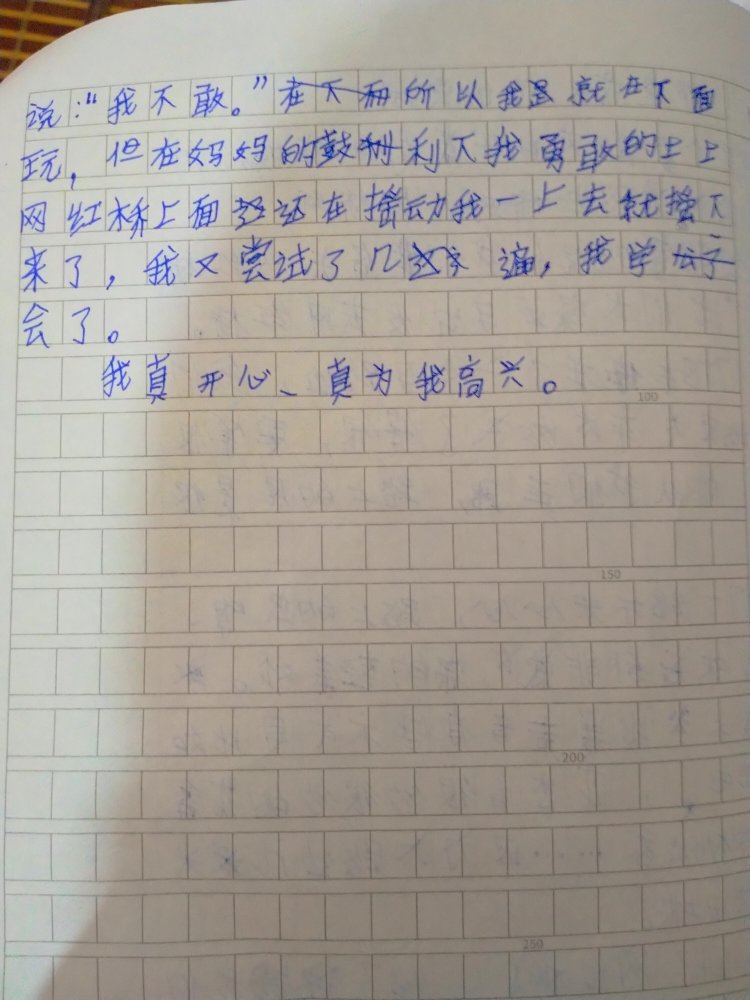 说：“我不敢。”所以我就在下面
玩，但在妈妈的鼓利下我勇敢的上上
网红桥上面还在摇动我一上去就摇下
来了，我又尝试了几遍，我学
会了。
我真开心、真为我高兴。
100
150
200
250